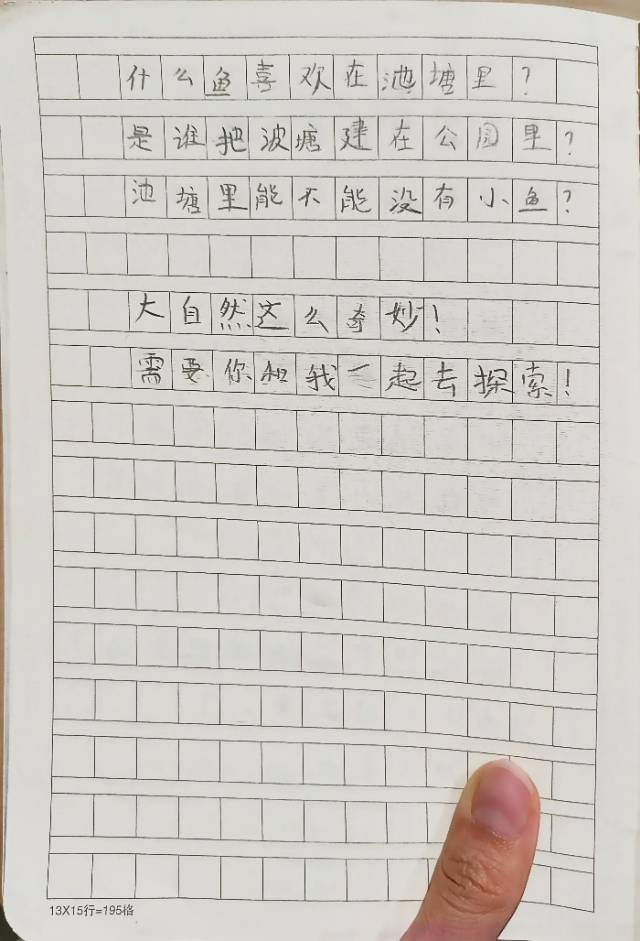 什么鱼喜欢在池塘里？
是谁把波塘建在公园里？
池塘里能不能没有小鱼？
大自然这么奇妙！
需要你和我一起去探索！
13X15行=195格